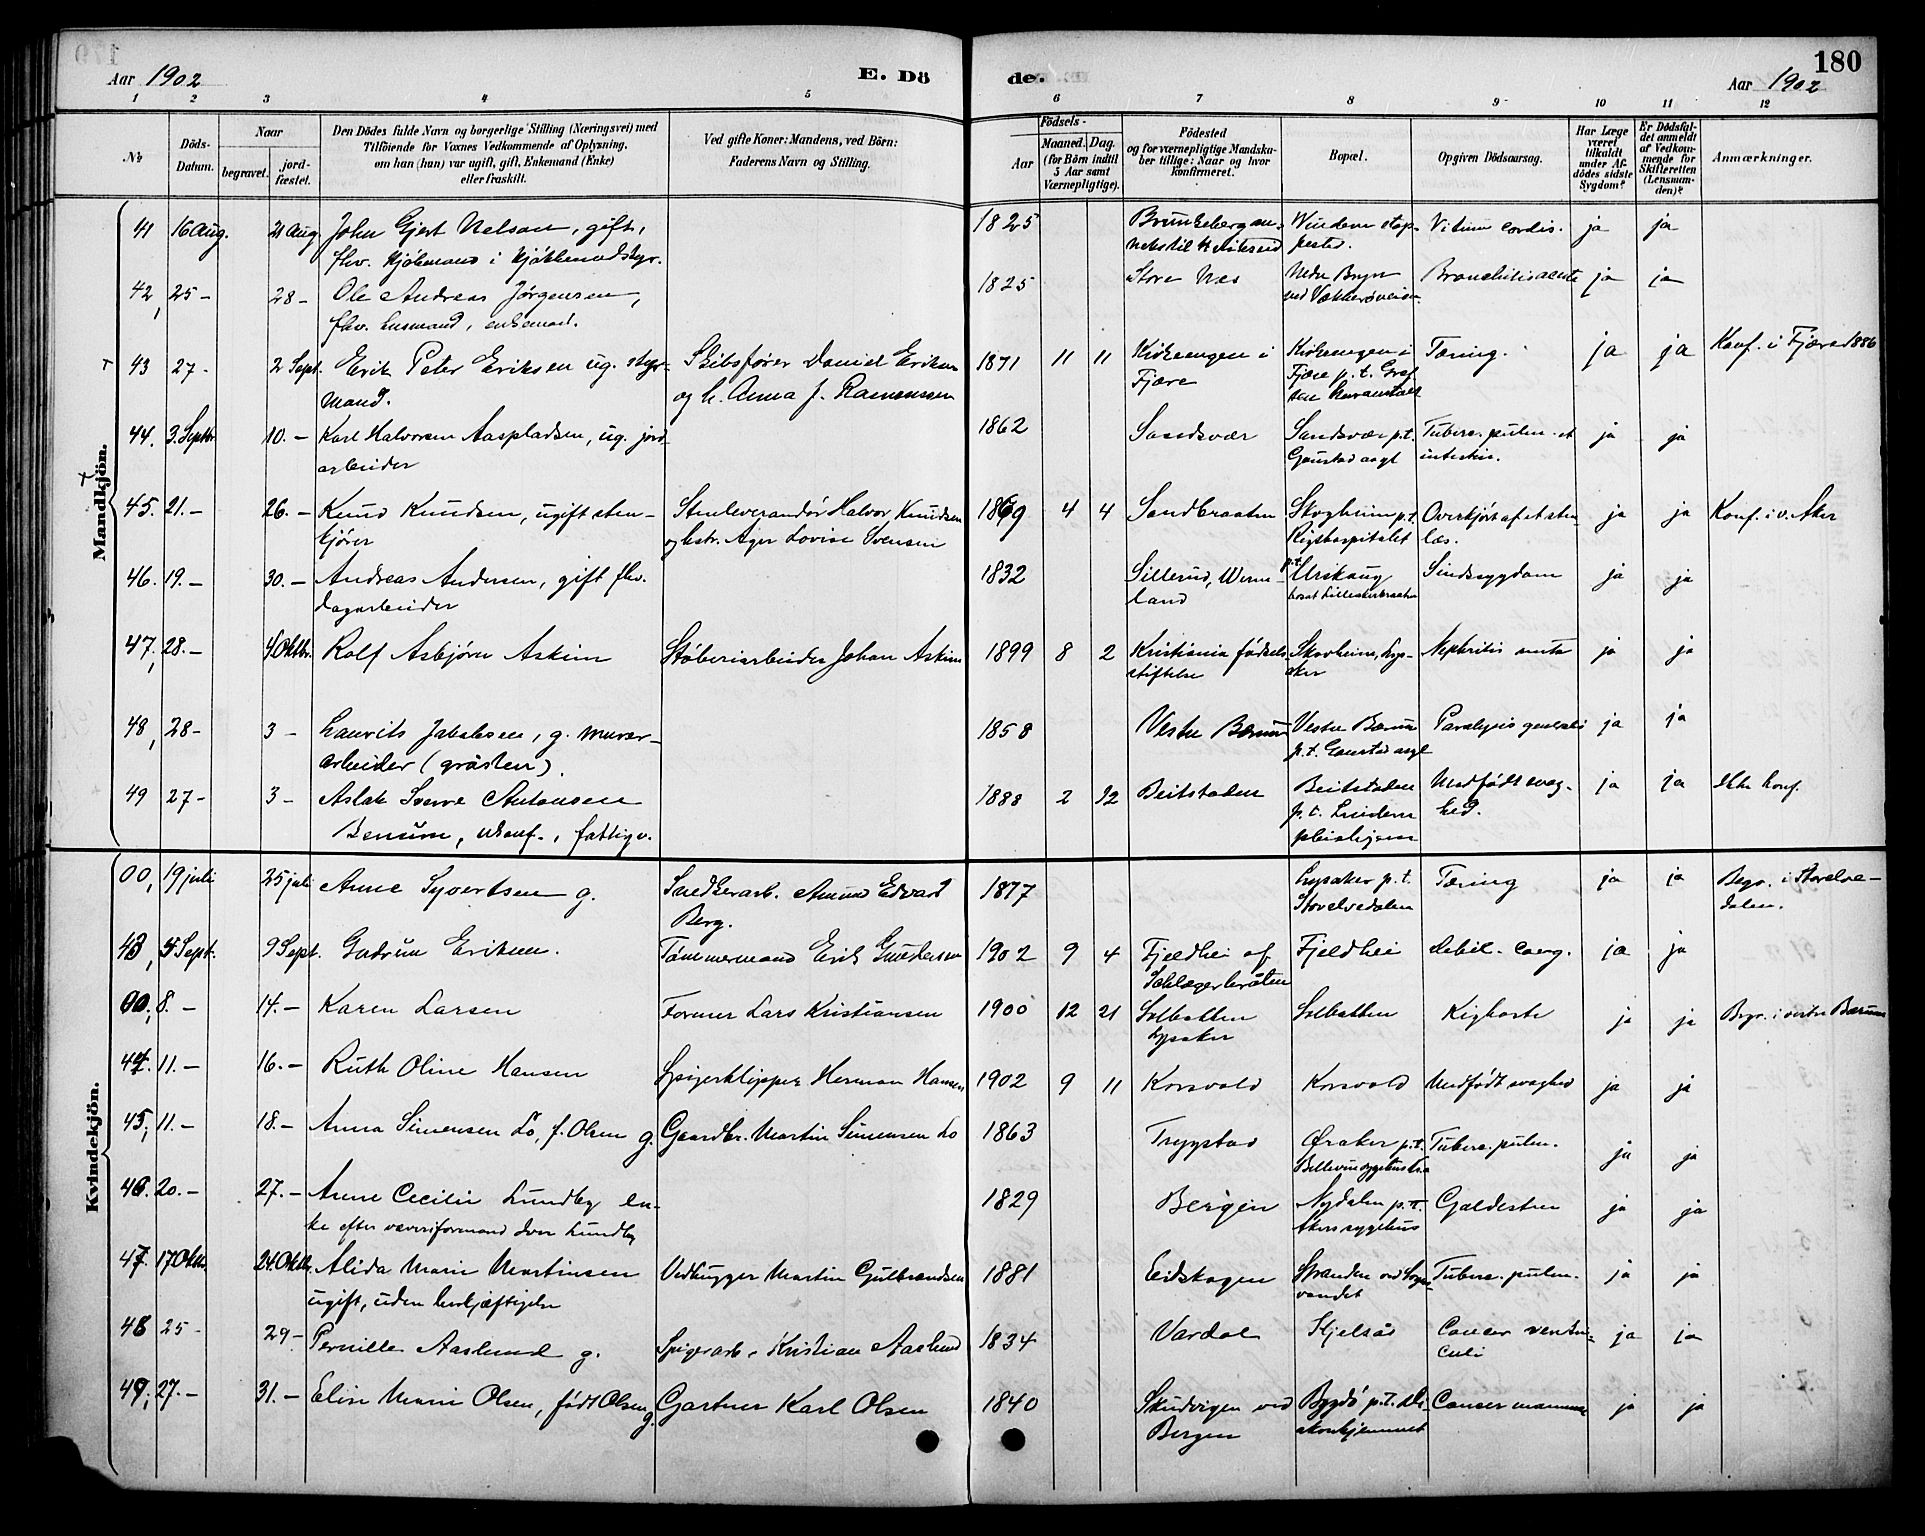 Aar 1902 E. Dö
de. 180
Aar 1902
1 2 3 4 5 6 7 8 9 10 11 12
№
Döds-Datum.
Naar
begravet.
jord-fæstet.
Den Dödes fulde Navn og borgerlige Stilling (Næringsvei) med
Tilföiende for Voxnes Vedkommende af Oplysning,
om han (hun) var ugift, gift, Enkemand (Enke)
eller fraskilt.
Ved gifte Koner: Mandens, ved Börn:
Faderens Navn og Stilling.
Födsels-
Aar
Maaned. Dag.
(for Börn indtil
5 Aar samt
Værnepligtige).
Födested
og for værnepligtige Mandska-
ber tillige: Naar og hvor
konfirmeret.
Bopæl.
Opgiven Dödsaarsag.
Har Læge
været
tilkaldt
under Af-
dödes sidste
Sygdom?
Er Dödsfal-
det anmeldt
af Vedkom-
mende for
Skifteretten
(Lensman-
den)?
Anmærkninger.
Mandkjön.
41 16 Aug. 21 Aug John Gjert Nelson, gift, 1825 Vitium cordis. ja ja
42, 25 - 28 - Ole Andreas Jørgensen, 1825 Store Næs Nedre Bryn Bronchitis acuta ja ja
fhv. husmand, enkemand.
43 27 - 2 Sept. Erik Peter Eriksen ug. styr- Skibsfører Daniel Eriksen 1871 11 11 Kirkeengen i Kirkeengen i Tæring. ja ja Konf. i Fjære 1886
mand. og h. Anna J. Rasmussen Fjære Fjære p.t. Gref
44. 3. Septbr 10. - Karl Halvorsen Aaspladsen, ug. jord- 1862 Sandsvær Sandsvær p.t. Tuberc. pulm. et ja ja
arbeider Gaustad asyl intestin.
45. 21. - 26. - Knud Knudsen, ugift sten- Stenleverandør Halvor Knudsen 1869 4 4 Sandbraaten Skogheim p.t. Overkjørt af et sten ja ja Konf. i v. Aker
kjører Lovise Svensen Rigshospitalet læs.
46. 19. - 30. - Andreas Andersen, gift fhv. 1832 Sillerud, Werm- p.t. Urskoug Sindssygdom ja ja
dagarbeider land
47, 28. - 4 Oktbr. Rolf Asbjørn Askim Støberiarbeider Johan Askim 1899 8 2 Kristiania fødsels- Skovheim, Lys- Nephritis acuta ja ja
stiftelse aker
48, 28 - 3 - Laurits Jakobsen, g. murer- 1858 Vestre Bærum Vestre Bærum Paralysis generalis ja ja
arbeider (gråsten). p.t. Gaustad asyl
49 27 - 3 - Aslak Sverre Antonsen 1888 2 12 Beitstaden Beitstaden Medfødt svag- ja ja Ikke konf.
Benum, ukonf., fattigv. p.t. Lindern hed.
pleiehjem
Kvindekjön.
00, 19 juli 25 juli Anne Syvertsen g. Snedkerarb. Amund Edvard 1877 Lysaker p.t. Tæring ja ja Begr. i Storelve-
Berg. Storelvedalen dalen.
43, 5 Sept. 9 Sept. Gudrun Eriksen. Tømmermand Erik Gundersen 1902 9 4 Fjeldhei af Fjeldhei Debil. cong. ja ja
00, 8. - 14. - Karen Larsen Former Lars Kristiansen 1900 12 21 Solbakken Solbakken Kighoste ja ja Begr. i vestre Bærum
Lysaker
44. 11. - 16. - Ruth Oline Hansen Spigerklipper Herman Hansen 1902 9 11 Korsvold Korsvold Medfødt svaghed ja ja
45, 11. - 18. - Anna Simensen Lö, f. Olsen g. Gaardbr. Martin Simensen Lö 1863 Trygstad Øraker p.t. Tuberc. pulm. ja ja
46. 20. - 27. - Anne Cecilie Lundby en- 1829 Bergen Nydalen p.t. Galdesten ja ja
ke efter væveriformand Iver Lundby Akers sygehus
47. 17 Oktbr. 24. Oktbr. Alida Marie Martinsen Vedhugger Martin Gulbrandsen 1881 Eidskogen Stranden ved Sogns- Tuberc. pulm. ja ja
ugift, uden beskjæftigelse vandet
48 25 - 29 - Pernille Aaslund g. Spigerarb. Kristian Aaslund 1834 Vardal Kjelsås Cancer ventri- ja ja
culi
49, 27. - 31. - Elise Marie Olsen, født Olsen g. Gartner Karl Olsen 1840 Skudvigen ved Bygdö p.t. Di- Cancer mammæ ja ja
Bergen akonhjemmet